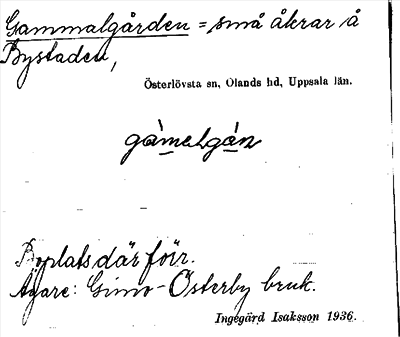 Gammalgården = små åkrar å
Bystaden,
Österlövsta sn, Olands hd, Uppsala län.
gàmalgán
Boplats där förr.
Ägare: Gimo-Österby bruk.
Ingegärd Isaksson 1936.